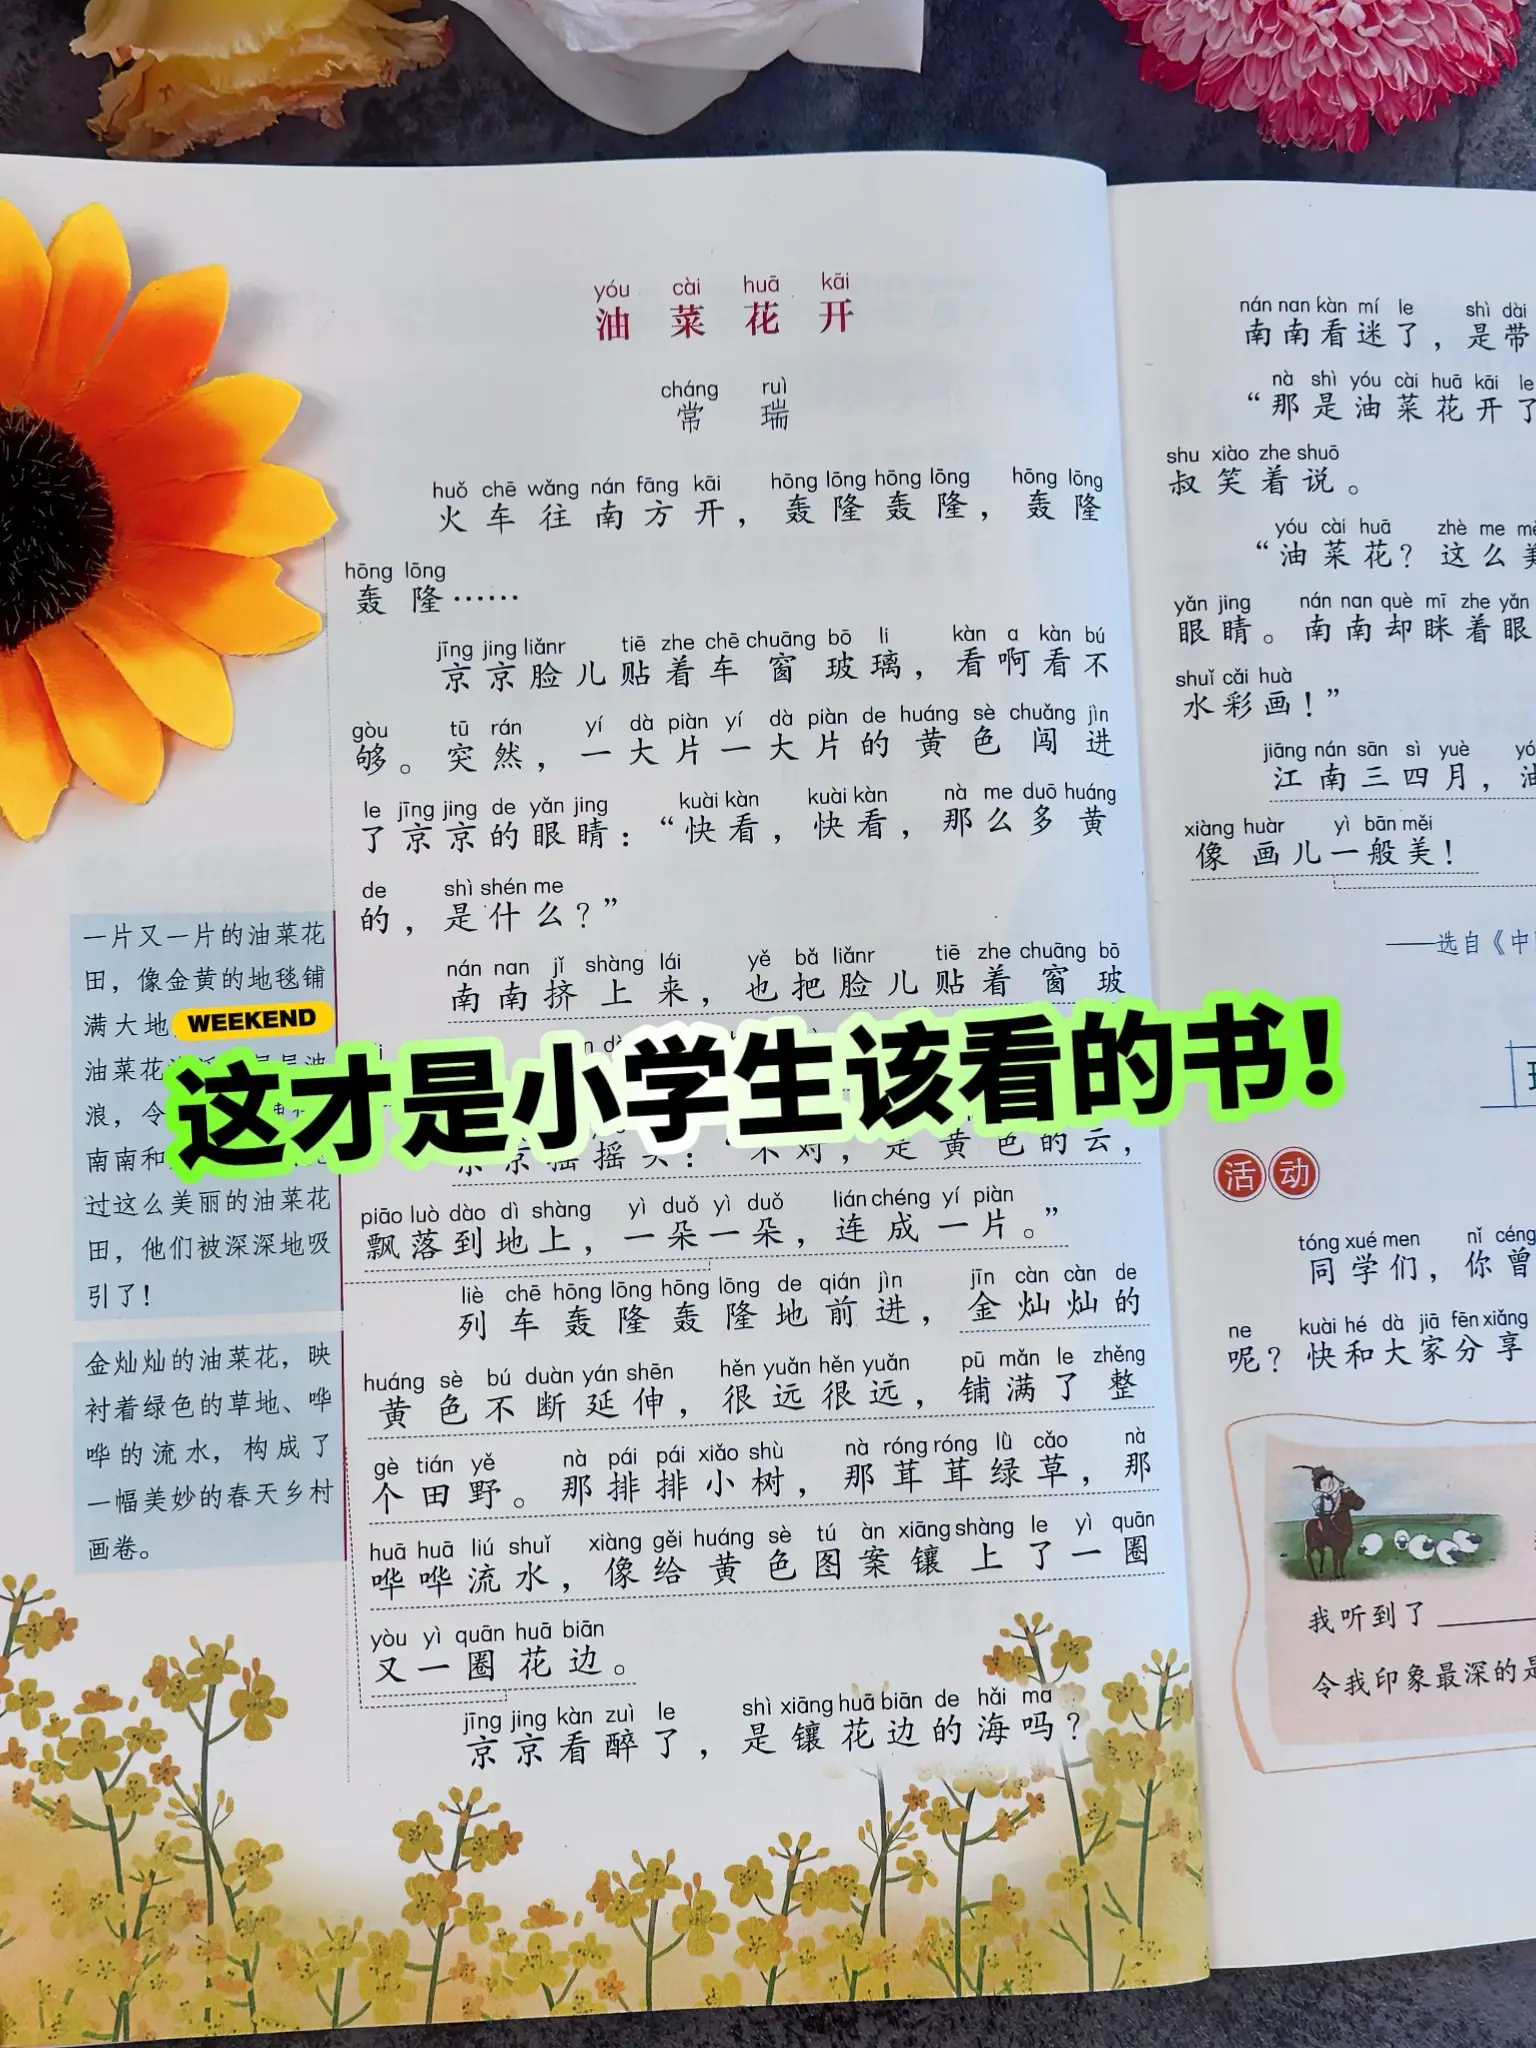 yóu cài huā kāi
油菜花开
cháng ruì
常瑞
huǒ chē wǎng nán fāng kāi hōng lōng hōng lōng hōng lōng
火车往南方开，轰隆轰隆，轰隆
hōng lōng
轰隆……
jīng jing liǎnr tiē zhe chē chuāng bō li kàn a kàn bú
京京脸儿贴着车窗玻璃，看啊看不
gòu tū rán yí dà piàn yí dà piàn de huáng sè chuǎng jìn
够。突然，一大片一大片的黄色闯进
le jīng jing de yǎn jing kuài kàn kuài kàn nà me duō huáng
了京京的眼睛：“快看，快看，那么多黄
de shì shén me
的，是什么？”
nán nan jǐ shàng lái yě bǎ liǎnr tiē zhe chuāng bō
南南挤上来，也把脸儿贴着窗玻
京京摇摇头：“不对，是黄色的云，
piāo luò dào dì shàng yì duǒ yì duǒ lián chéng yí piàn
飘落到地上，一朵一朵，连成一片。”
liè chē hōng lōng hōng lōng de qián jìn jīn càn càn de
列车轰隆轰隆地前进，金灿灿的
huáng sè bú duàn yán shēn hěn yuǎn hěn yuǎn pū mǎn le zhěng
黄色不断延伸，很远很远，铺满了整
gè tián yě nà pái pái xiǎo shù nà róng róng lǜ cǎo nà
个田野。那排排小树，那茸茸绿草，那
huā huā liú shuǐ xiàng gěi huáng sè tú àn xiāng shàng le yì quān
哗哗流水，像给黄色图案镶上了一圈
yòu yì quān huā biān
又一圈花边。
jīng jing kàn zuì le shì xiāng huā biān de hǎi ma
京京看醉了，是镶花边的海吗？
一片又一片的油菜花
田，像金黄的地毯铺
满大地
油菜花
浪，令
南南和
过这么美丽的油菜花
田，他们被深深地吸
引了！
金灿灿的油菜花，映
衬着绿色的草地、哗
哗的流水，构成了
一幅美妙的春天乡村
画卷。
WEEKEND
这才是小学生该看的书！
nán nan kàn mí le shì dài
南南看迷了，是带
nà shì yóu cài huā kāi le
“那是油菜花开了
shu xiào zhe shuō
叔笑着说。
yóu cài huā zhè me
“油菜花？这么
yǎn jing nán nan què mī zhe yǎn
眼睛。南南却眯着眼
shuǐ cǎi huà
水彩画！”
jiāng nán sān sì yuè
江南三四月，
xiàng huàr yì bān měi
像画儿一般美！
——选自《中
活动
tóng xué men nǐ céng
同学们，你曾
ne kuài hé dà jiā fēn xiǎng
呢？快和大家分享
我听到了
令我印象最深的是